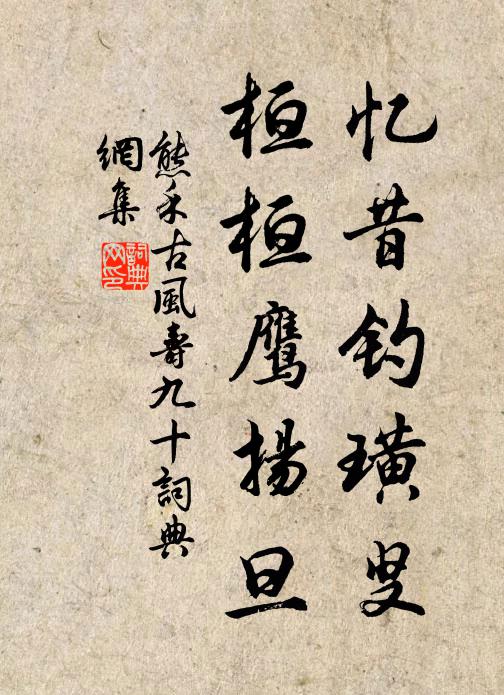 忆昔钓璜叟
桓桓鹰揚旦
熊禾古風壽九十詞典
網集
詞典网印